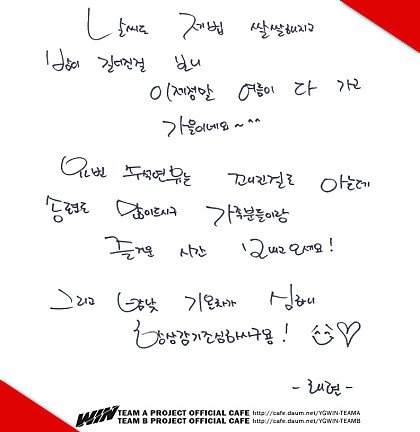 날씨도 제법 쌀쌀해지고
밤이 길어진걸 보니
이제정말 여름이 다 가고
가을이네요~^^
이번 추석연휴는 꽤나긴걸로 아는데
송편도 많이드시구 가족분들이랑
즐거운 시간 보내고오세요!
그리고 밤낮 기온차가 심하니
항상감기조심하시구용!
-태현-
WIN TEAM A PROJECT OFFICIAL CAFE http://cafe.daum.net/YGWIN-TEAMA
TEAM B PROJECT OFFICIAL CAFE http://cafe.daum.net/YGWIN-TEAMB